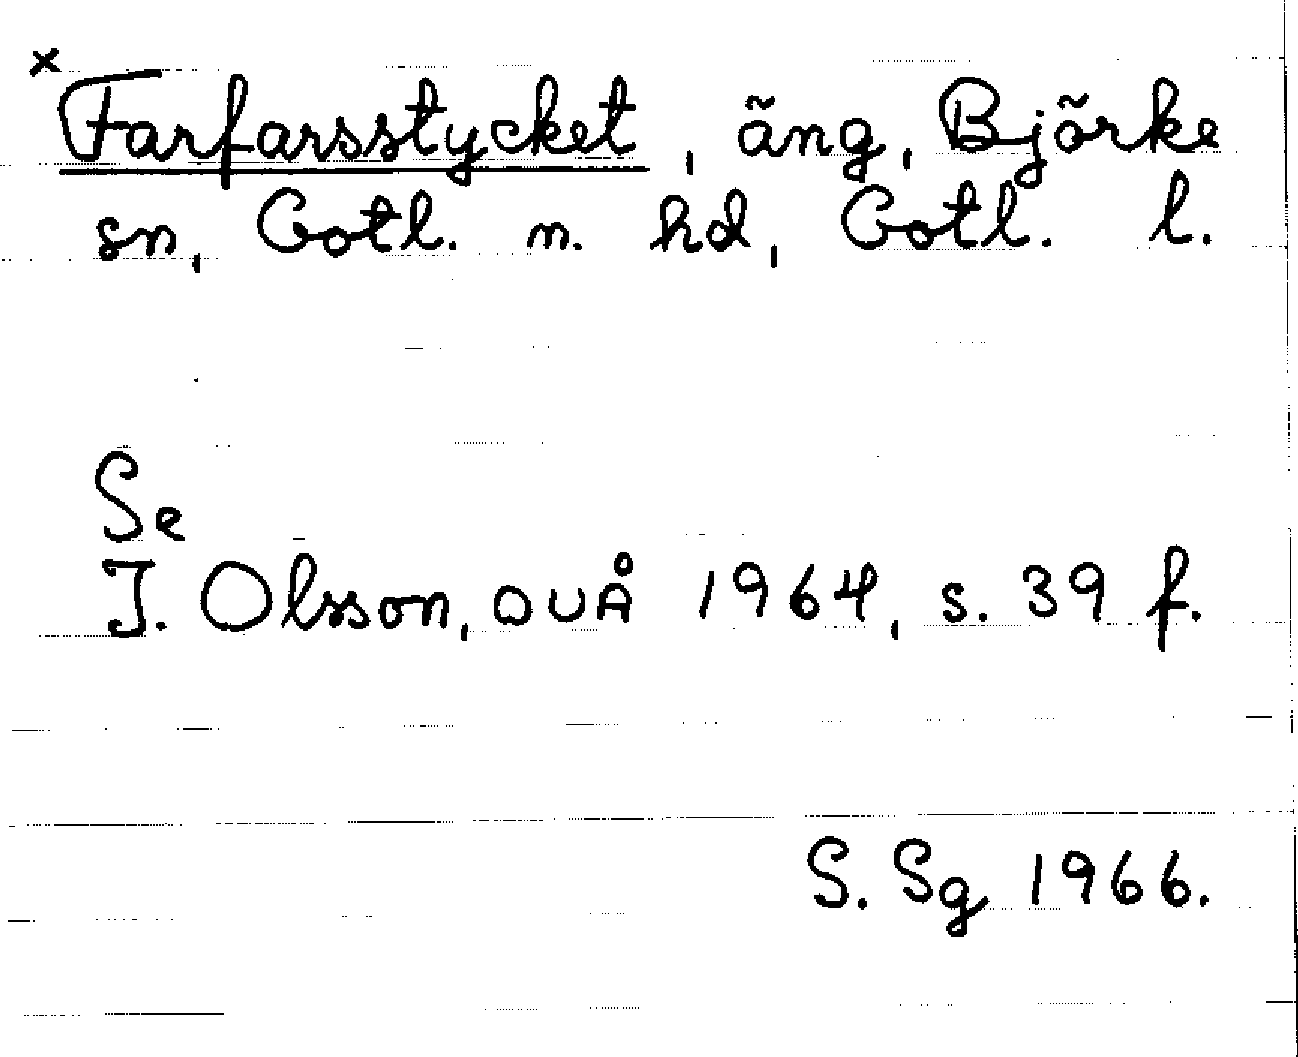 x Farfarsstycket, äng, Björke
sn, Gotl. n. hd, Gotl. l.
Se
I. Olsson, OUÅ 1964, s. 39 f.
S. Sg 1966.